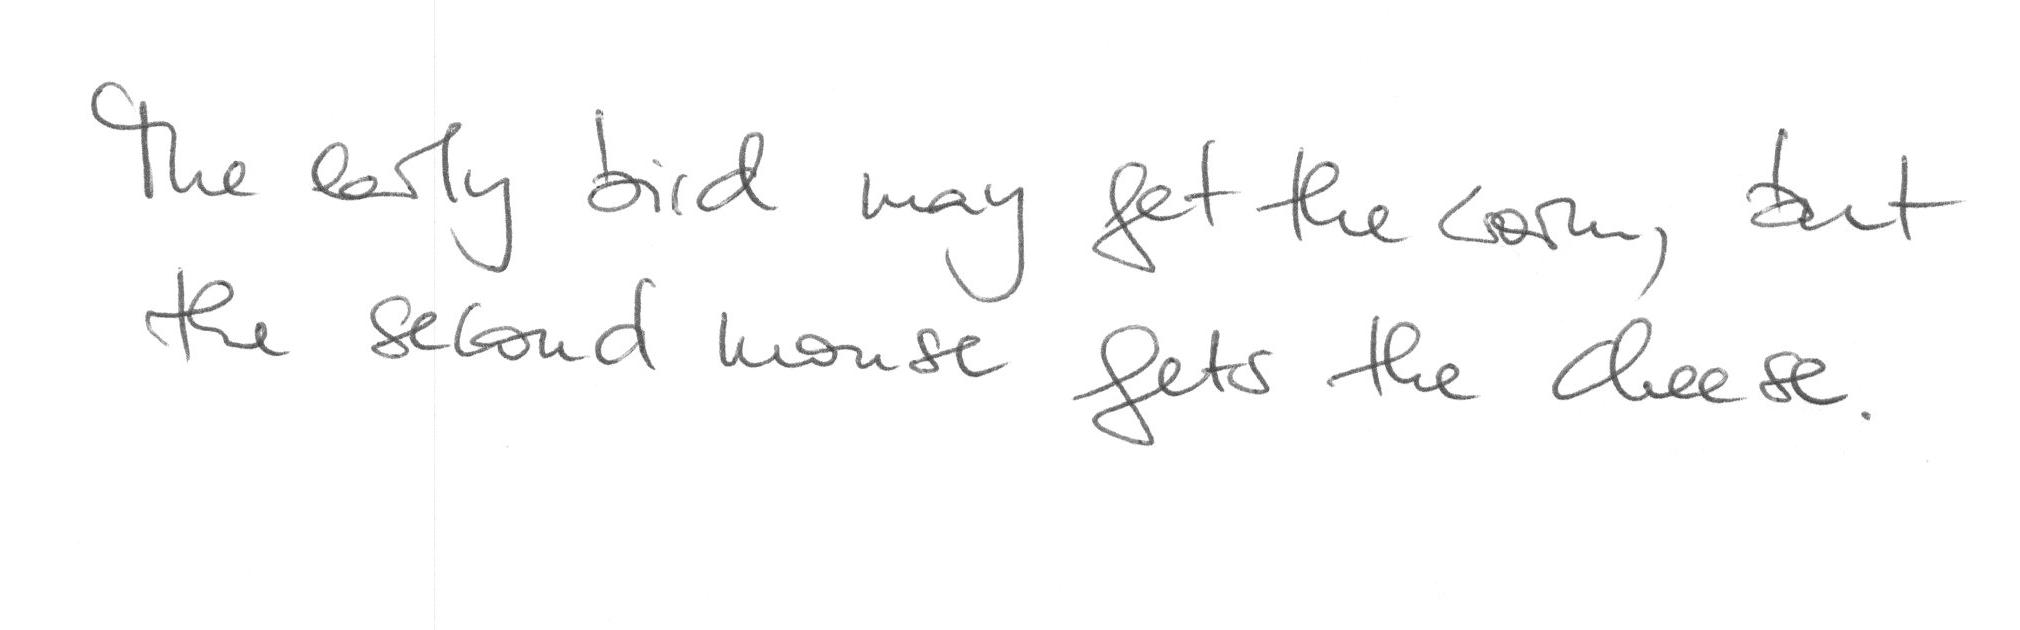 The early bird may get the but
the second mouse gets the cheese.